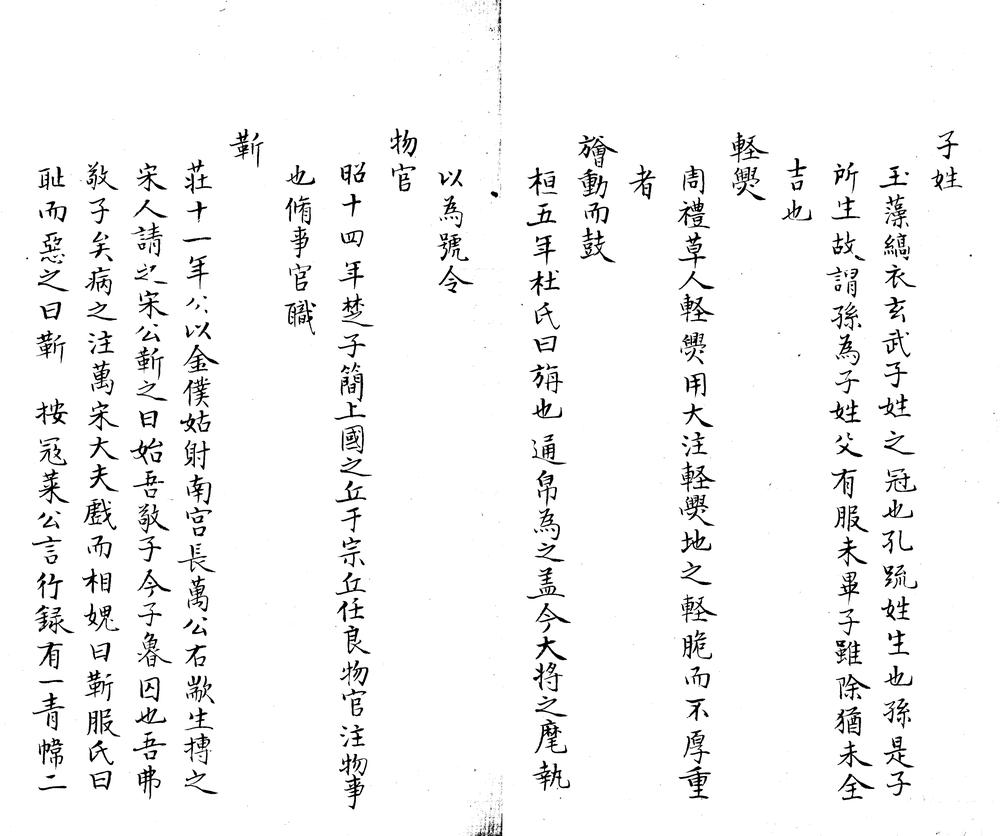 子姓
玉藻縞衣玄武子姓之冠也孔䟽姓生也孫是子
所生故謂孫為子姓父有服未畢子雖除猶未全
吉也
軽㷱
周禮草人軽㷱用犬注軽㷱地之軽脆而不厚重
者
旝動而鼓
桓五年杜氏曰旃也通帛為之盖今大将之麾執
以為號令
物官
昭十四年楚子簡上國之丘于宗丘任良物官注物事
也脩事官職
靳
荘十一年公以金僕姑射南宫長萬公右歂生摶之
宋人請之宋公靳之曰始吾敬子今子魯囚也吾弗
敬子矣病之注萬宋大夫戲而相媿曰靳服氏曰
耻而惡之曰靳 按冦莱公言行録有一青幃二